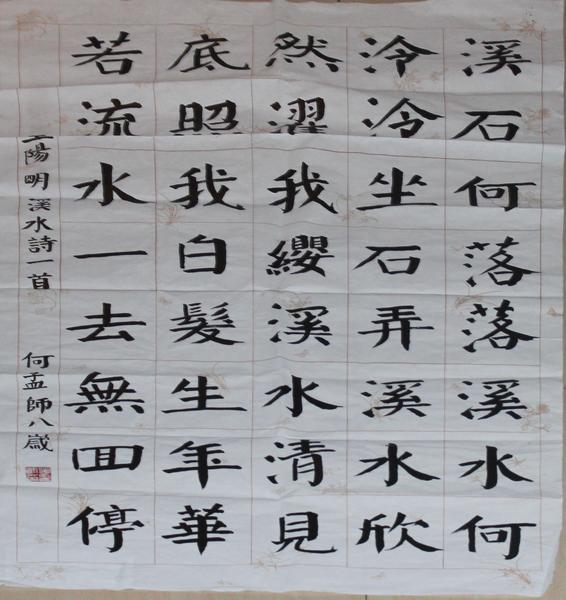 溪石何落落溪水何
泠泠坐石弄溪水欣
然濯我纓溪水清見
底照我白髮生年華
若流水一去無回停
王陽明溪水詩一首 何孟師八歲